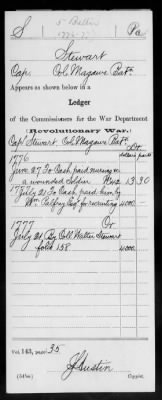 S 5 Battn Pa.
Stewart
Cap. Col. Magaws Batn.
Appears as shown below in a
Ledger
of the Commissioners for the War Department
(Revolutionary War.)
Capt Stewart, Col. Magaws Batn.
Dr
1776 dollars parts
June 27 To Cash paid nursing
a wounded Soldier 13.30
July 21 To Cash paid him by
Wm Palfrey Esqr for recruiting 4000
1777 Cr
July 21 By Coll Walter Stewart
folo 158 4000
Vol. 143, page 35
Copyist.